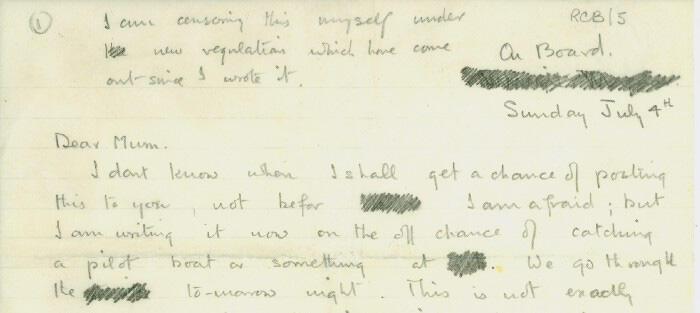 ① I am censoring this myself under RCB/5
new regulations which have come On Board.
out since I wrote it.
Sunday July 4th
Dear Mum.
I dont know when I shall get a chance of posting
this to you, not befor I am afraid; but
I am writing it now on the off chance of catching
a pilot boat or something at . We go through
the to-morrow night. This is not exactly